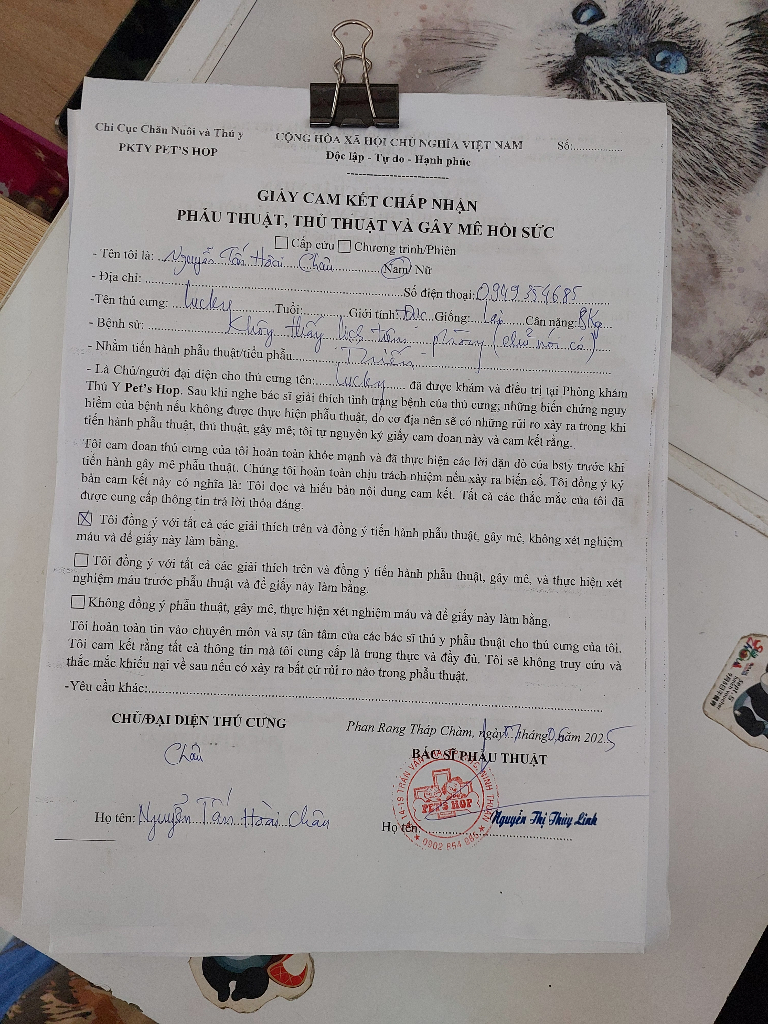 Chi Cục Chăn Nuôi và Thú y
PKTY PET'S HOP
CỘNG HÒA XÃ HỘI CHỦ NGHĨA VIỆT NAM
Độc lập - Tự do - Hạnh phúc
Số:................
GIẤY CAM KẾT CHẤP NHẬN
PHẪU THUẬT, THỦ THUẬT VÀ GÂY MÊ HỒI SỨC
Cấp cứu Chương trình/Phiên
- Tên tôi là: Nguyễn Tấn Hoài Châu Nam/ Nữ
- Địa chỉ: Số điện thoại: 0949359685
-Tên thú cưng: Lucky Tuổi: Giới tính: Đực Giống: Lai Cân nặng: 8Kg
- Bệnh sử: Không thấy lịch tiêm phòng (chủ nói có)
- Nhằm tiến hành phẫu thuật/tiểu phẫu Thiến
- Là Chủ/người đại diện cho thú cưng tên: Lucky đã được khám và điều trị tại Phòng khám
Thú Y Pet's Hop. Sau khi nghe bác sĩ giải thích tình trạng bệnh của thú cưng; những biến chứng nguy
hiểm của bệnh nếu không được thực hiện phẫu thuật, do cơ địa nên sẽ có những rủi ro xảy ra trong khi
tiến hành phẫu thuật, thủ thuật, gây mê; tôi tự nguyện ký giấy cam đoan này và cam kết rằng:
Tôi cam đoan thú cưng của tôi hoàn toàn khỏe mạnh và đã thực hiện các lời dặn dò của bsty trước khi
tiến hành gây mê phẫu thuật. Chúng tôi hoàn toàn chịu trách nhiệm nếu xảy ra biến cố. Tôi đồng ý ký
bản cam kết này có nghĩa là: Tôi đọc và hiểu bản nội dung cam kết. Tất cả các thắc mắc của tôi đã
được cung cấp thông tin trả lời thỏa đáng.
Tôi đồng ý với tất cả các giải thích trên và đồng ý tiến hành phẫu thuật, gây mê, không xét nghiệm
máu và để giấy này làm bằng.
Tôi đồng ý với tất cả các giải thích trên và đồng ý tiến hành phẫu thuật, gây mê, và thực hiện xét
nghiệm máu trước phẫu thuật và để giấy này làm bằng.
Không đồng ý phẫu thuật, gây mê, thực hiện xét nghiệm máu và để giấy này làm bằng.
Tôi hoàn toàn tin vào chuyên môn và sự tận tâm của các bác sĩ thú y phẫu thuật cho thú cưng của tôi.
Tôi cam kết rằng tất cả thông tin mà tôi cung cấp là trung thực và đầy đủ. Tôi sẽ không truy cứu và
thắc mắc khiếu nại về sau nếu có xảy ra bất cứ rủi ro nào trong phẫu thuật.
-Yêu cầu khác:
CHỦ/ĐẠI DIỆN THÚ CƯNG
Phan Rang Tháp Chàm, ngày 17 tháng 06 năm 2025
BÁC SĨ PHẪU THUẬT
Châu
PET'S HOP
Họ tên: Nguyễn Tấn Hoài Châu
Họ tên: Nguyễn Thị Thùy Linh